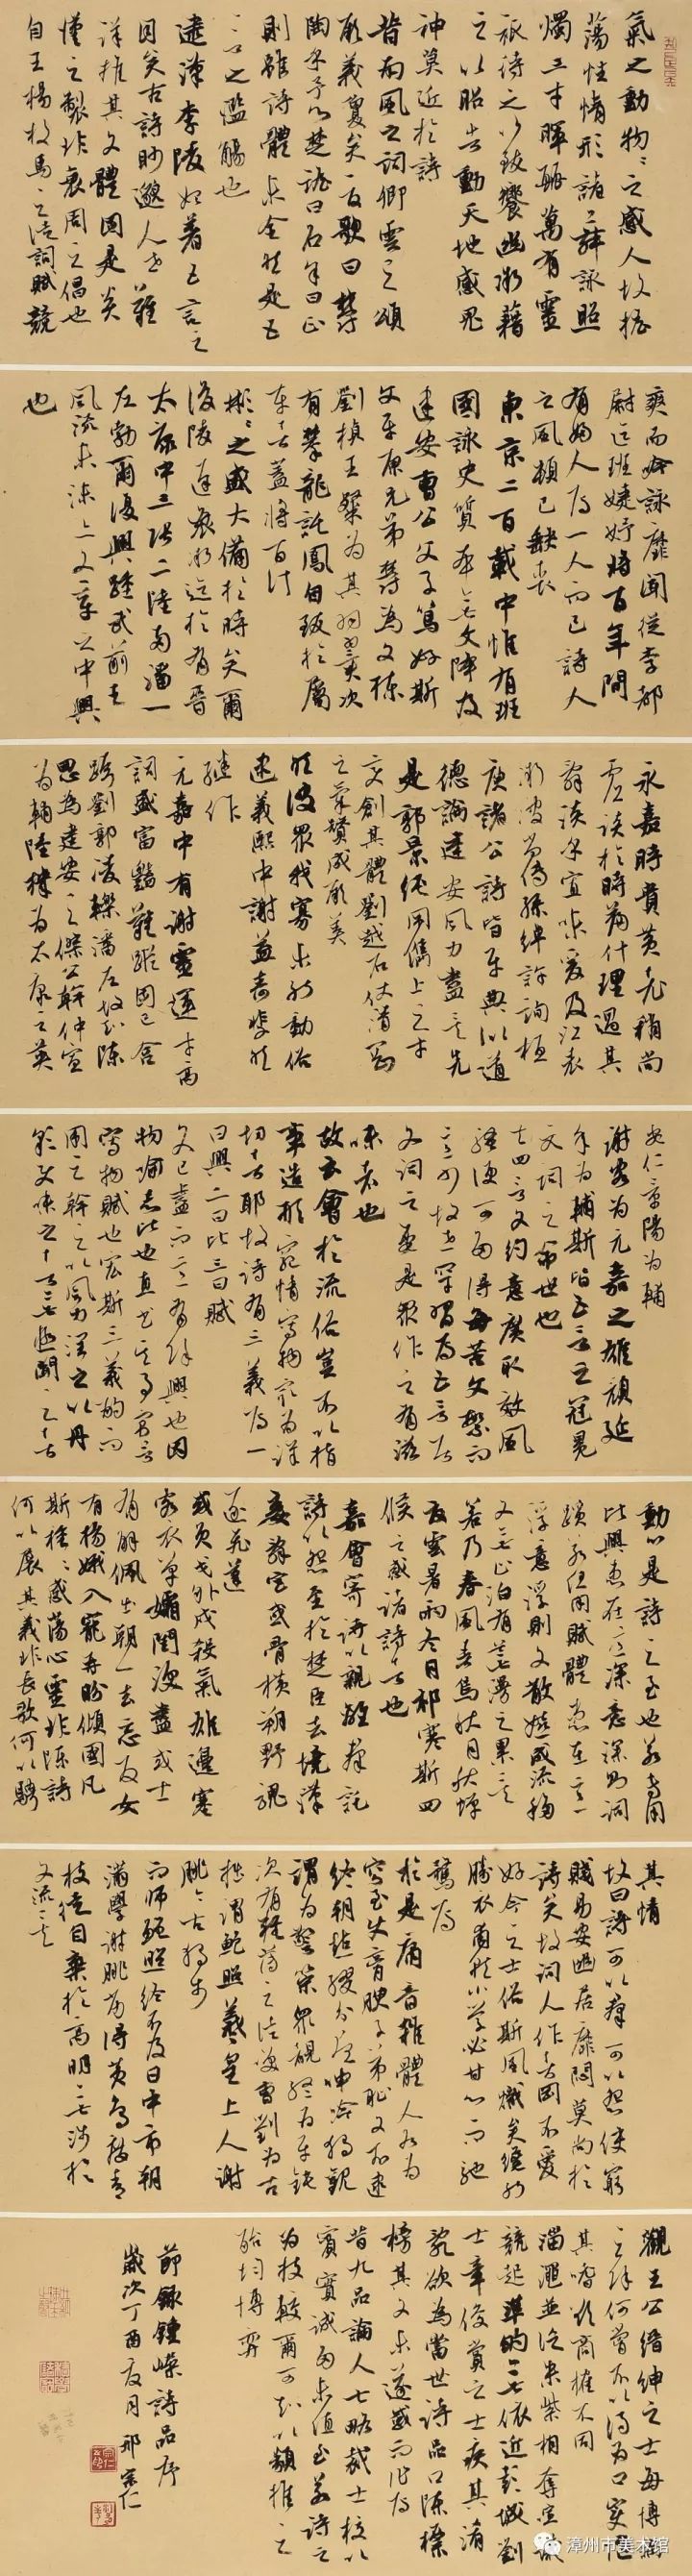 氣之動物々之感人故搖
蕩性情形諸舞詠照
燭三才暉麗萬有靈
祇待之以致饗幽微藉
之以昭告動天地感鬼
神莫近於詩
昔南風之詞卿雲之頌
厥義夐矣夏歌曰鬱
陶乎予心楚謡曰名余曰正
則雖詩體未全然是五
言之濫觴也
逮漢李陵始著五言之
目矣古詩眇邈人世難
詳推其文體固是炎
漢之製非衰周之倡也
自王楊枚馬之徒詞賦競
爽而吟詠靡聞從李都
尉迄班婕妤將百年間
有婦人焉一人而已詩人
之風頓已缺喪
東京二百載中惟有班
固詠史質木無文降及
建安曹公父子篤好斯
文平原兄弟鬱為文棟
劉楨王粲為其羽翼次
有攀龍託鳳自致於屬
車者蓋將百計
彬々之盛大備於時矣爾
後陵遲衰微迄於有晉
太康中三張二陸兩潘一
左勃爾復興踵武前王
風流未沫亦文章之中興
也
永嘉時貴黃老稍尚
虛談於時篇什理過其
辭淡乎寡味爰及江表
微波尚傳孫綽許詢桓
庾諸公詩皆平典似道
德論建安風力盡矣先
是郭景純用儁上之才
變創其體劉越石仗清剛
之氣贊成厥美
然彼眾我寡未能動俗
逮義熙中謝益壽斐然
繼作
元嘉中有謝靈運才高
詞盛富豔難蹤固已含
跨劉郭凌轢潘左故知陳
思為建安之傑公幹仲宣
為輔陸機為太康之英
安仁景陽為輔
謝客為元嘉之雄顏延
年為輔斯皆五言之冠冕
文詞之命世也
夫四言文約意廣取效風
騷便可多得每苦文繁而
意少故世罕習焉五言居
文詞之要是眾作之有滋
味者也
故云會於流俗豈不以指
事造形窮情寫物最為詳
切者耶故詩有三義焉一
曰興二曰比三曰賦
文已盡而意有餘興也因
物喻志比也直書其事寓言
寫物賦也宏斯三義酌而
用之幹之以風力潤之以丹
彩使味之者無極聞之者
動心是詩之至也若專用
比興患在意深意深則詞
躓若但用賦體患在意
浮意浮則文散嬉成流移
文無止泊有蕪漫之累矣
若乃春風春鳥秋月秋蟬
夏雲暑雨冬月祁寒斯四
候之感諸詩者也
嘉會寄詩以親離群託
詩以怨至於楚臣去境漢
妾辭宮或骨橫朔野魂
逐飛蓬
或負戈外戍殺氣雄邊塞
客衣單孀閨淚盡或士
有解佩出朝一去忘反女
有揚娥入寵再盼傾國凡
斯種々感蕩心靈非陳詩
何以展其義非長歌何以騁
其情
故曰詩可以群可以怨使窮
賤易安幽居靡悶莫尚於
詩矣故詞人作者罔不愛
好今之士俗斯風熾矣纔能
勝衣甫就小學必甘心而馳
騖焉
於是庸音雜體人各為
容至使膏腴子弟恥文不逮
終朝點綴分夜呻吟獨觀
謂為警策眾覩終為平鈍
次有輕蕩之徒笑曹劉為古
拙謂鮑照羲皇上人謝
朓今古獨步
而師鮑照終不及日中市朝
滿學謝朓劣得黃鳥度青
枝徒自棄於高明無涉於
文流矣
觀王公縉紳之士每博論
之餘何嘗不以詩為口實隨
其嗜欲商榷不同
淄澠並泛朱紫相奪喧議
競起準的無依近彭城劉
士章俊賞之士疾其淆
亂欲為當世詩品口陳標
榜其文未遂感而作焉
昔九品論人七略裁士校以
賓實誠多未值至若詩之
為技較爾可知以類推之
殆均博弈
節錄鍾嶸詩品序
歲次丁酉夏月邢宗仁
漳州市美术馆